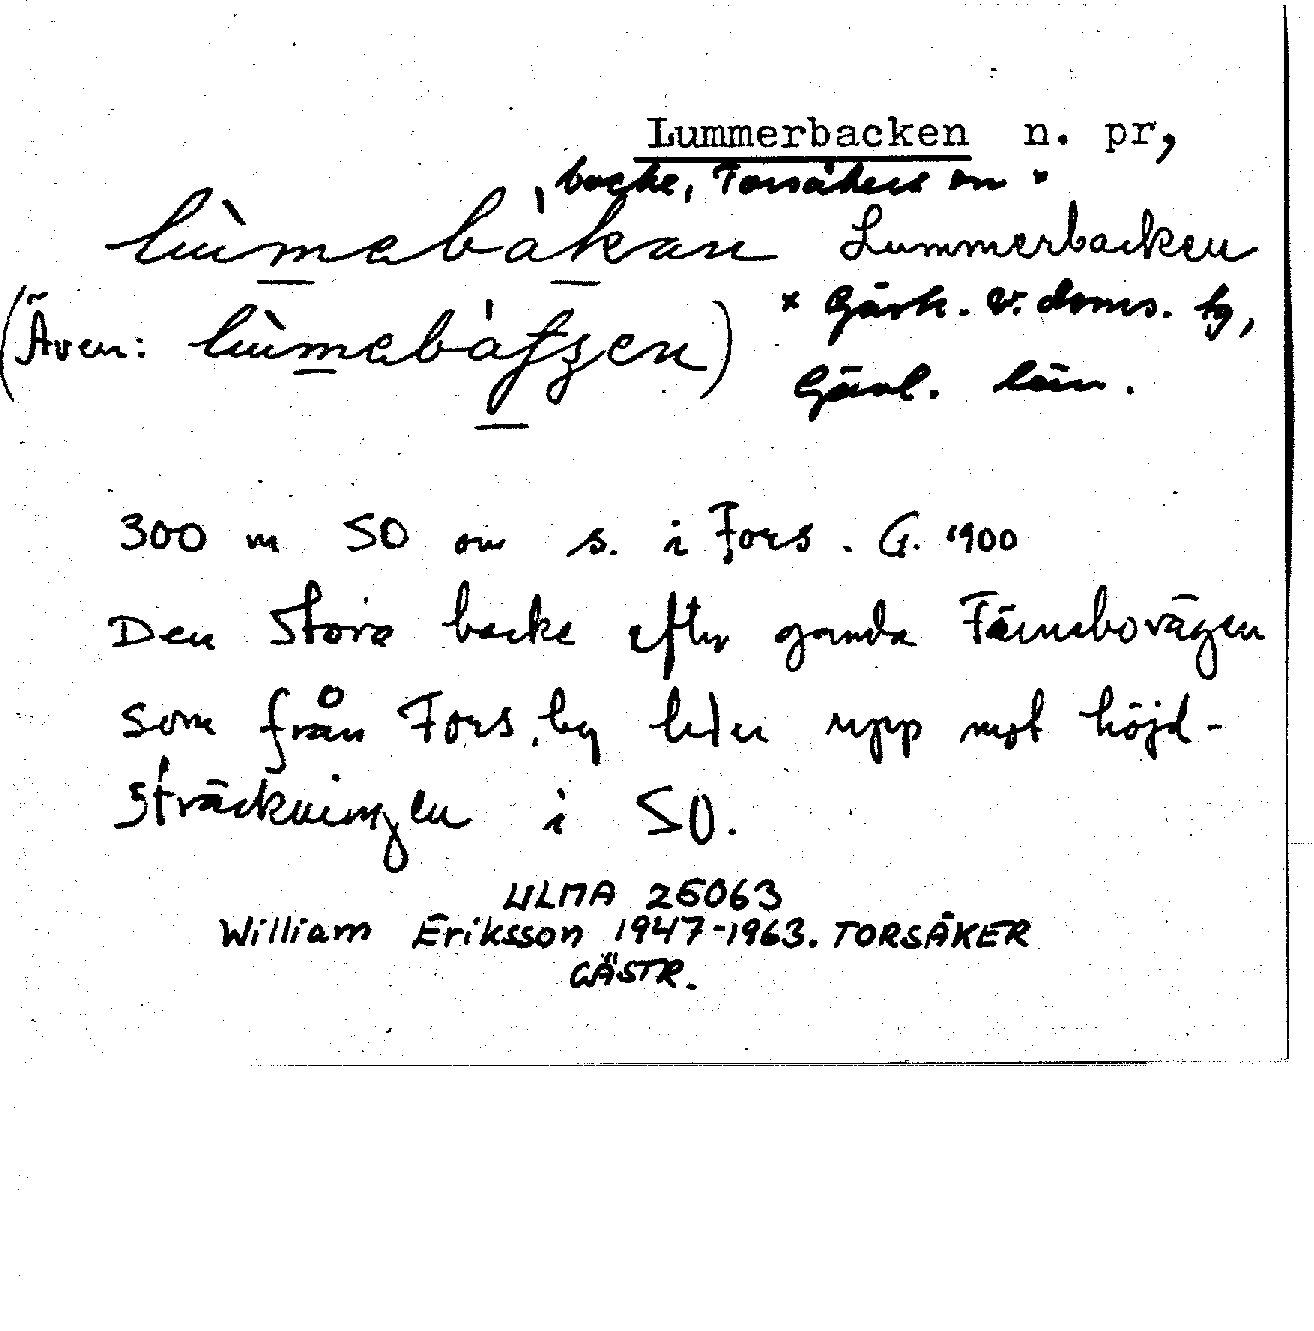 Lummerbacken n. pr,
backe, Torsåkers sn ×
lùmebákan Lummerbacken
× Gävle. v. doms. tg,
(Även: lùmebáʃʒen)
Gävl. län.
300 m SO om s. i Fors. G. 1900
Den stora backe efter gamla Färnebovägen
som från Fors by leder upp mot höjd-
sträckningen i SO.
ULMA 26063
William Eriksson 1947-1963. TORSÅKER
GÄSTR.